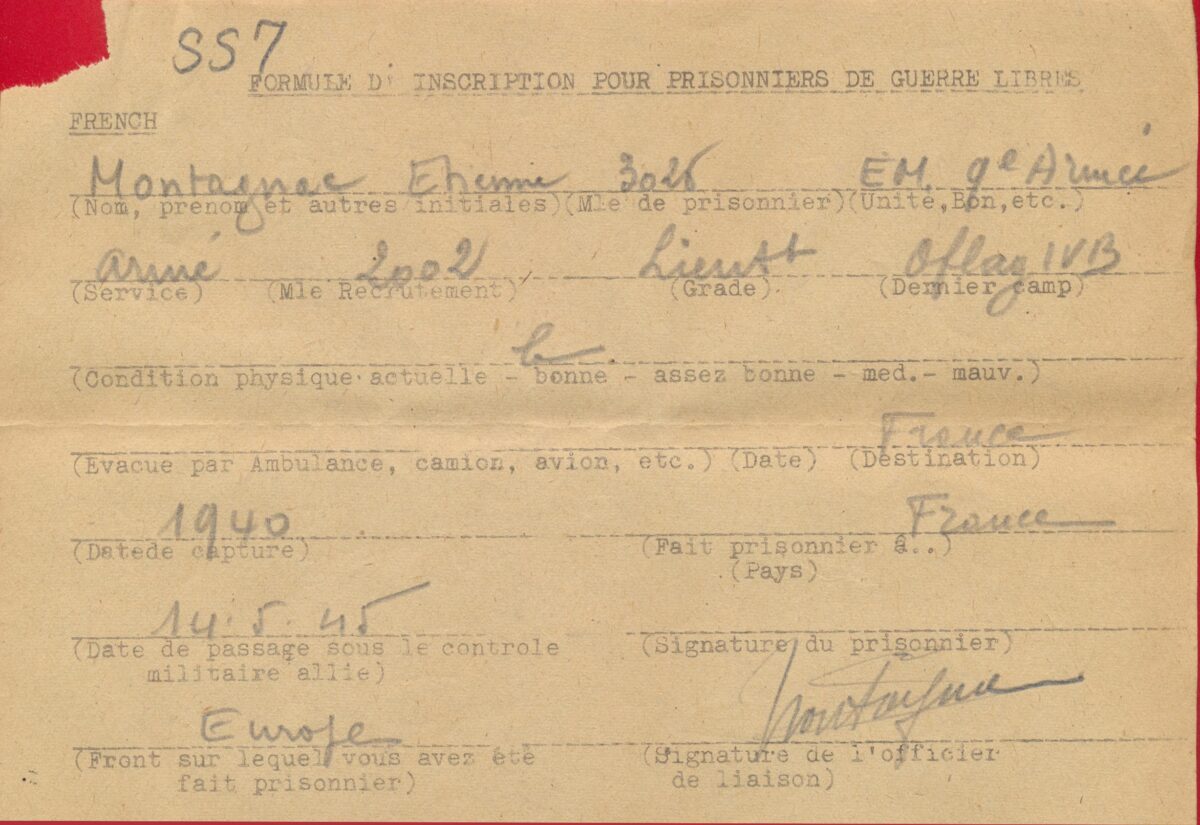 SS7
FORMULE D' INSCRIPTION POUR PRISONNIERS DE GUERRE LIBRES
FRENCH
Montagnac Etienne 3028 EM. 9e Armée
(Nom, prenom et autres initiales)(Mle de prisonnier)(Unite,Bon,etc.)
Armé 2002 Lieutt Oflag IVB
(Service) (Mle Recrutement) (Grade) (Dernier camp)
b
(Condition physique actuelle - bonne - assez bonne - med.- mauv.)
France
(Evacue par Ambulance, camion, avion, etc.) (Date) (Destination)
1940 France
(Datede capture) (Fait prisonnier à..)
(Pays)
14.5.45
(Date de passage sous le controle (Signature du prisonnier)
militaire allie)
Europe Montagnac
(Front sur lequel vous avez été (Signature de l'officier
fait prisonnier) de liaison)